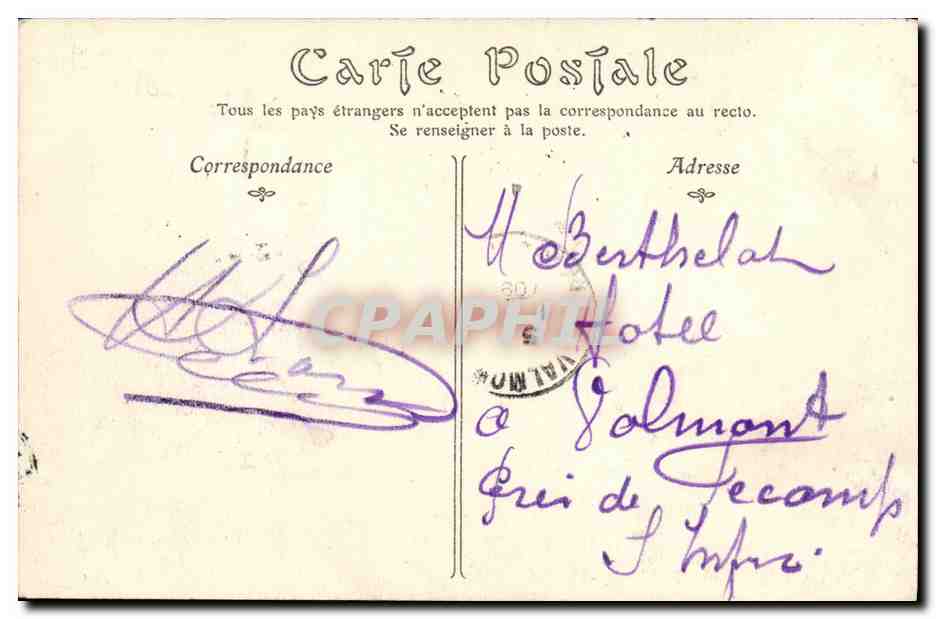 Carte Postale
Tous les pays étrangers n'acceptent pas la correspondance au recto.
Se renseigner à la poste.
Correspondance
Adresse
M Berthelot
Hotel
a Valmont
Près de Fecamp
S Infre.
VALMON
CPAPHIL